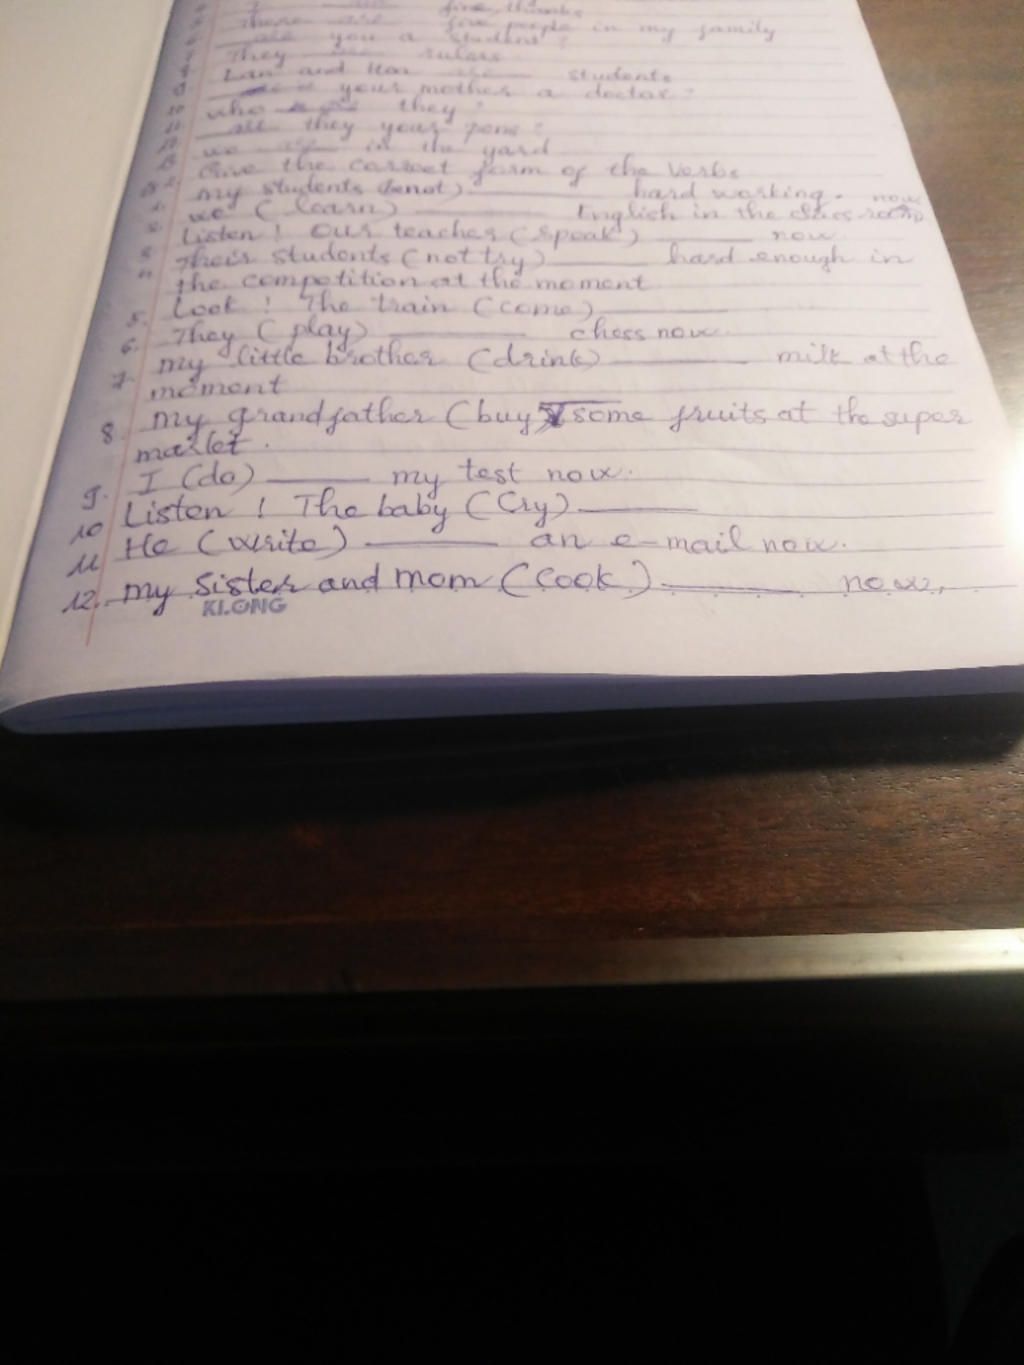 5 There are five people in my family
6 are you a student ?
7 They are rulers
8 Lan and Hoa are students
9 your mother a doctor ?
10 who are they ?
11 are they your pens ?
12 we are in the yard
Give the correct form of the Verbs
my students (be not) ______ hard working . now
we ( learn ) ______ English in the class room
Listen ! Our teacher ( speak ) ______ now.
Their students ( not try ) ______ hard enough in
the competition at the moment
5. Look ! The train ( come ) ______
6. They ( play ) ______ chess now.
7. my little brother ( drink ) ______ milk at the
moment
8. my grandfather ( buy ) some fruits at the super
market .
9. I ( do ) ______ my test now.
10 Listen ! The baby ( Cry ) ______
11 He ( write ) ______ an e-mail now.
12. my sister and mom ( cook ) ______ now.
KLONG